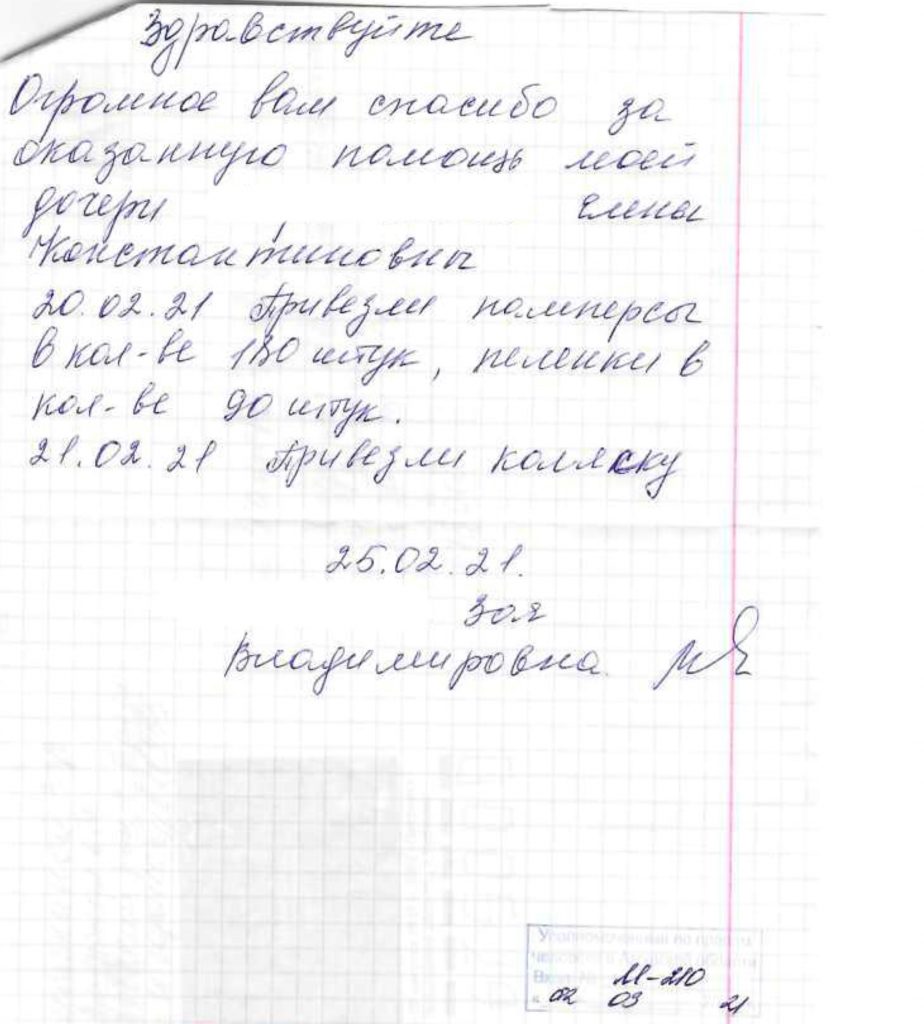 Здравствуйте
Огромное вам спасибо за
оказанную помощь моей
дочери Елены
Константиновны
20.02.21 Привезли памперсы
в кол-ве 180 штук, пеленки в
кол-ве 90 штук.
21.02.21 Привезли коляску
25.02.21.
Зоя
Владимировна
Уполномоченный по правам
человека в
М-210
02 03 21